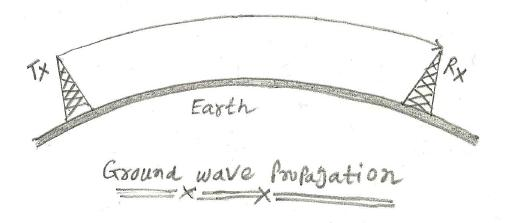 Tx
Rx
Earth
Ground wave Propagation